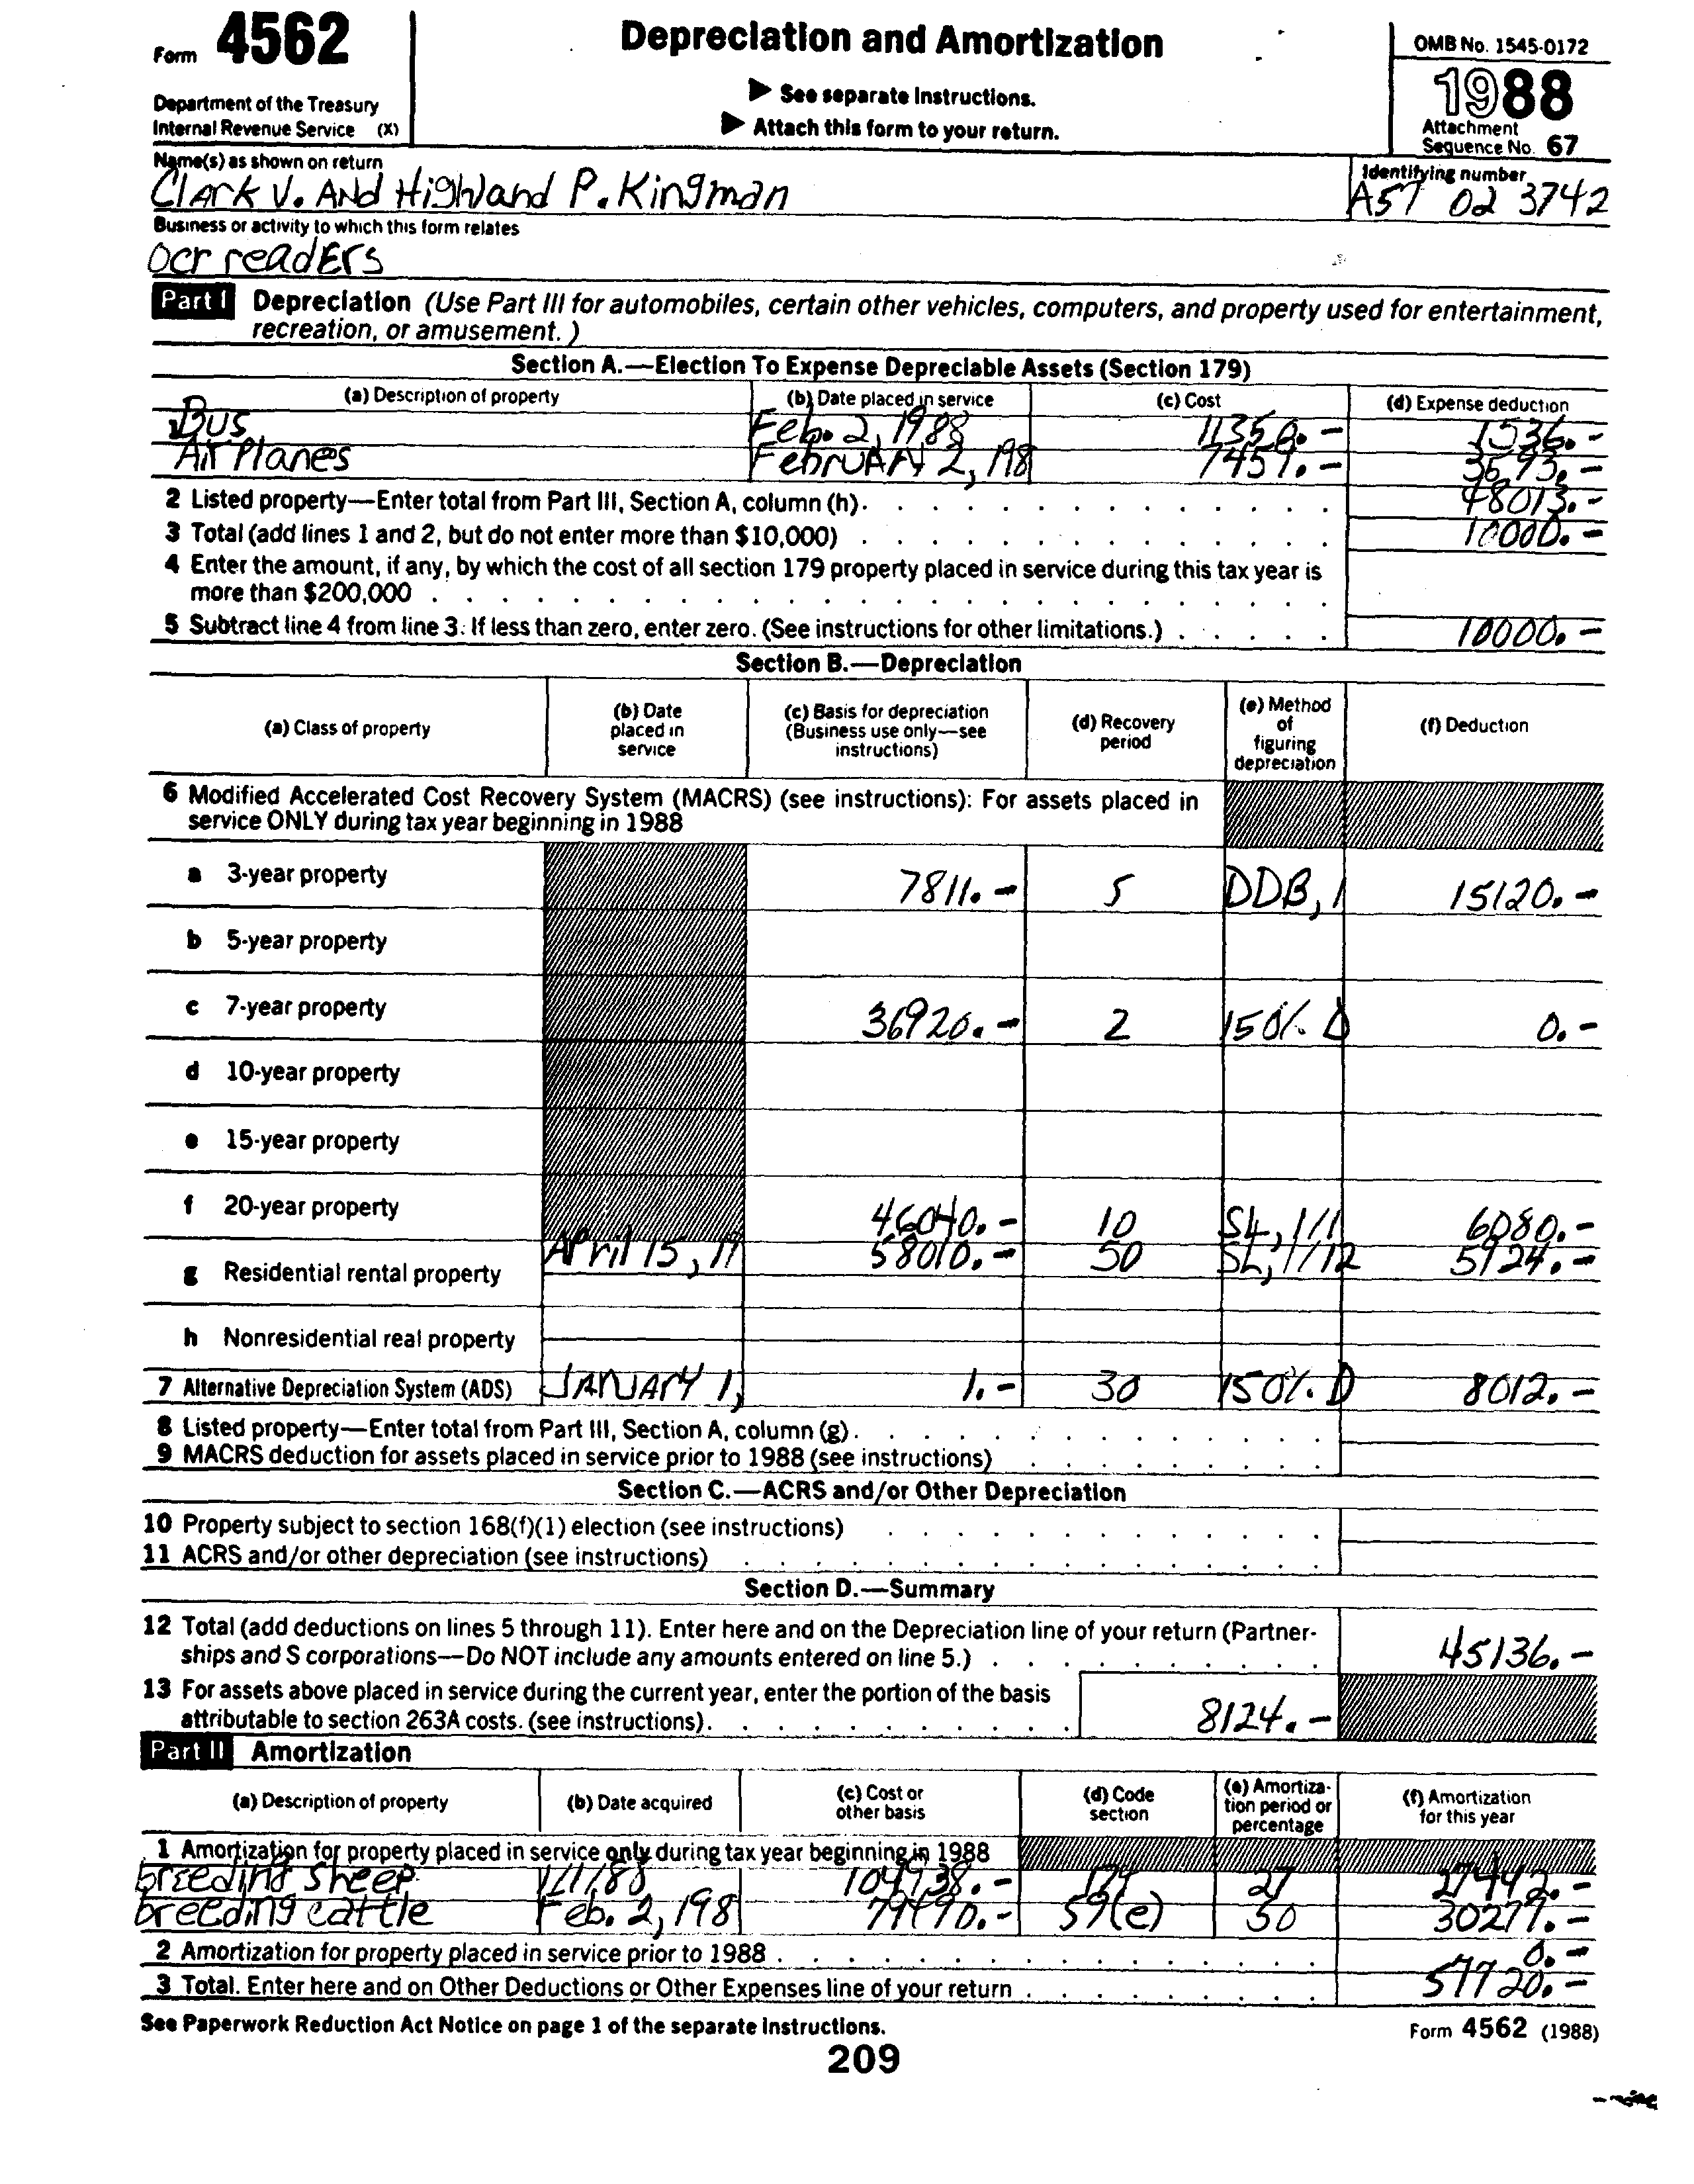 Form 4562
Department of the Treasury
Internal Revenue Service (X)
Depreciation and Amortization
▶ See separate Instructions.
▶ Attach this form to your return.
OMB No. 1545-0172
1988
Attachment
Sequence No. 67
Name(s) as shown on return
Clark V. And Highland P. Kingman
Identifying number
A57 02 3742
Business or activity to which this form relates
ocr readers
Part I Depreciation (Use Part III for automobiles, certain other vehicles, computers, and property used for entertainment,
recreation, or amusement.)
Section A.—Election To Expense Depreciable Assets (Section 179)
(a) Description of property (b) Date placed in service (c) Cost (d) Expense deduction
1 Bus Feb. 2, 1988 11358.- 1536.-
Air Planes February 2, 198 7459.- 3573.-
2 Listed property—Enter total from Part III, Section A, column (h). 48013.-
3 Total (add lines 1 and 2, but do not enter more than $10,000) 10000.-
4 Enter the amount, if any, by which the cost of all section 179 property placed in service during this tax year is
more than $200,000
5 Subtract line 4 from line 3. If less than zero, enter zero. (See instructions for other limitations.) 10000.-
Section B.—Depreciation
(a) Class of property
(b) Date
placed in
service
(c) Basis for depreciation
(Business use only—see
instructions)
(d) Recovery
period
(e) Method
of
figuring
depreciation
(f) Deduction
6 Modified Accelerated Cost Recovery System (MACRS) (see instructions): For assets placed in
service ONLY during tax year beginning in 1988
a 3-year property 7811.- 5 DDB, 1 15120.-
b 5-year property
c 7-year property 36920.- 2 150% D 0.-
d 10-year property
e 15-year property
f 20-year property 46040.- 10 SL, 1/1 6080.-
g Residential rental property April 15, 19 58010.- 50 SL, 1/12 5924.-
h Nonresidential real property
7 Alternative Depreciation System (ADS) JANUARY 1, 1.- 30 150% D 8012.-
8 Listed property—Enter total from Part III, Section A, column (g).
9 MACRS deduction for assets placed in service prior to 1988 (see instructions)
Section C.—ACRS and/or Other Depreciation
10 Property subject to section 168(f)(1) election (see instructions)
11 ACRS and/or other depreciation (see instructions)
Section D.—Summary
12 Total (add deductions on lines 5 through 11). Enter here and on the Depreciation line of your return (Partner-
ships and S corporations—Do NOT include any amounts entered on line 5.) 45136.-
13 For assets above placed in service during the current year, enter the portion of the basis
attributable to section 263A costs. (see instructions). 8124.-
Part II Amortization
(a) Description of property
(b) Date acquired
(c) Cost or
other basis
(d) Code
section
(e) Amortiza-
tion period or
percentage
(f) Amortization
for this year
1 Amortization for property placed in service only during tax year beginning in 1988
breeding sheep 1/1/88 104938.- 27 27442.-
breeding cattle Feb. 2, 198 79490.- 59(e) 50 30279.-
2 Amortization for property placed in service prior to 1988 0.-
3 Total. Enter here and on Other Deductions or Other Expenses line of your return 57720.-
See Paperwork Reduction Act Notice on page 1 of the separate Instructions.
Form 4562 (1988)
209